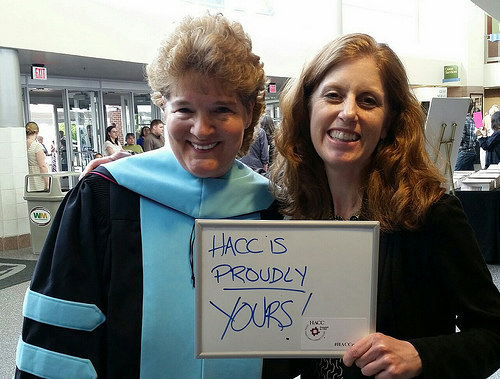 EXIT
WM
HACC is
PROUDLY
YOURS!
HACC
#HACC